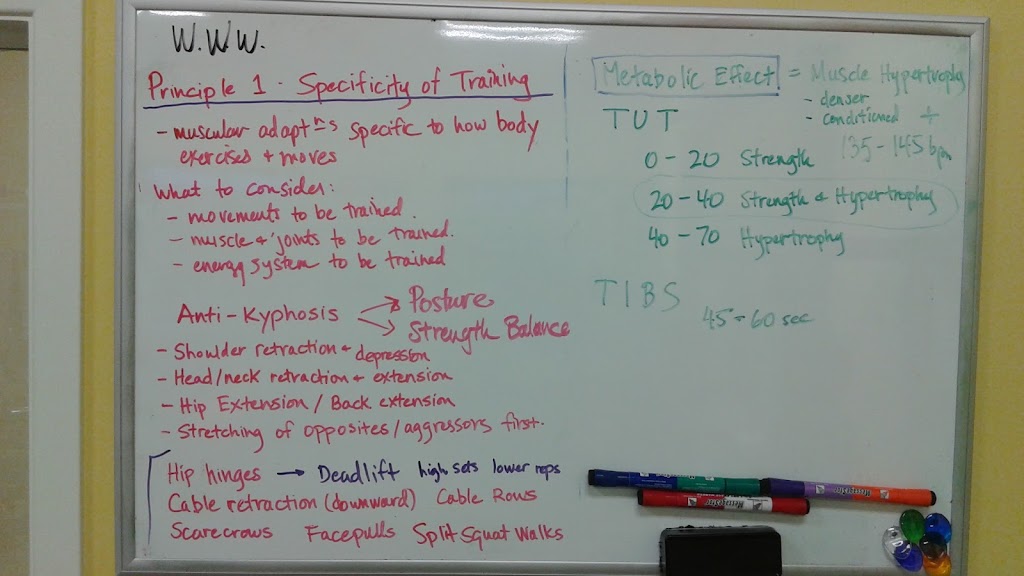 W.W.W.
Principle 1 - Specificity of Training
- muscular adaptⁿs specific to how body
exercises + moves
What to consider:
- movements to be trained.
- muscle + joints to be trained.
- energy system to be trained
Anti-Kyphosis
Posture
Strength Balance
- Shoulder retraction + depression
- Head/neck retraction + extension
- Hip Extension / Back extension
- Stretching of opposites/aggressors first.
Hip hinges → Deadlift high sets lower reps
Cable retraction (downward) Cable Rows
Scarecrows Facepulls Split Squat Walks
Metabolic Effect = Muscle Hypertrophy
- denser
- conditioned +
135-145 bpm
TUT
0-20 Strength
20-40 Strength + Hypertrophy
40-70 Hypertrophy
TIBS
45-60 sec